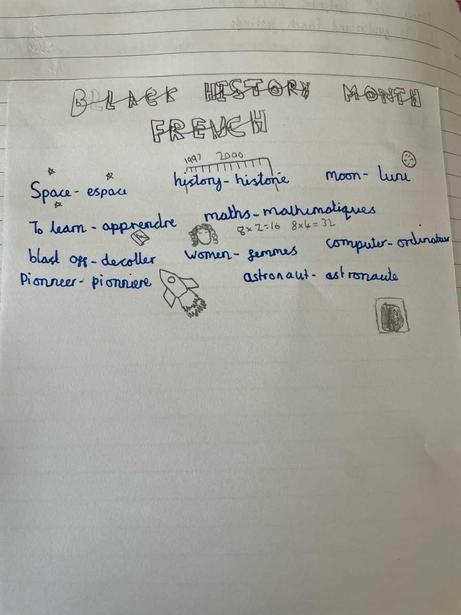 BLACK HISTORY MONTH
FRENCH
1997 2000
Space - espace history - historie moon - lune
To learn - apprendre maths - mathematiques
8x2=16 8x4=32
blast off - decoller women - femmes computer - ordinateur
Pionneer - pionniere astronaut - astronaute